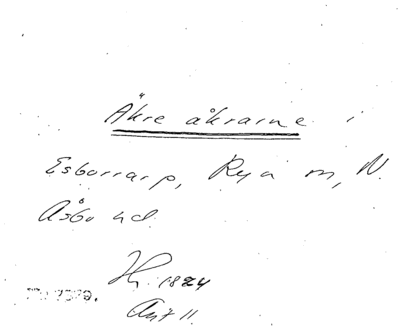 Åkre åkrarne i
Esborrarp, Rya sn, N.
Åsbo hd.
Hz. 1824
Akt 11